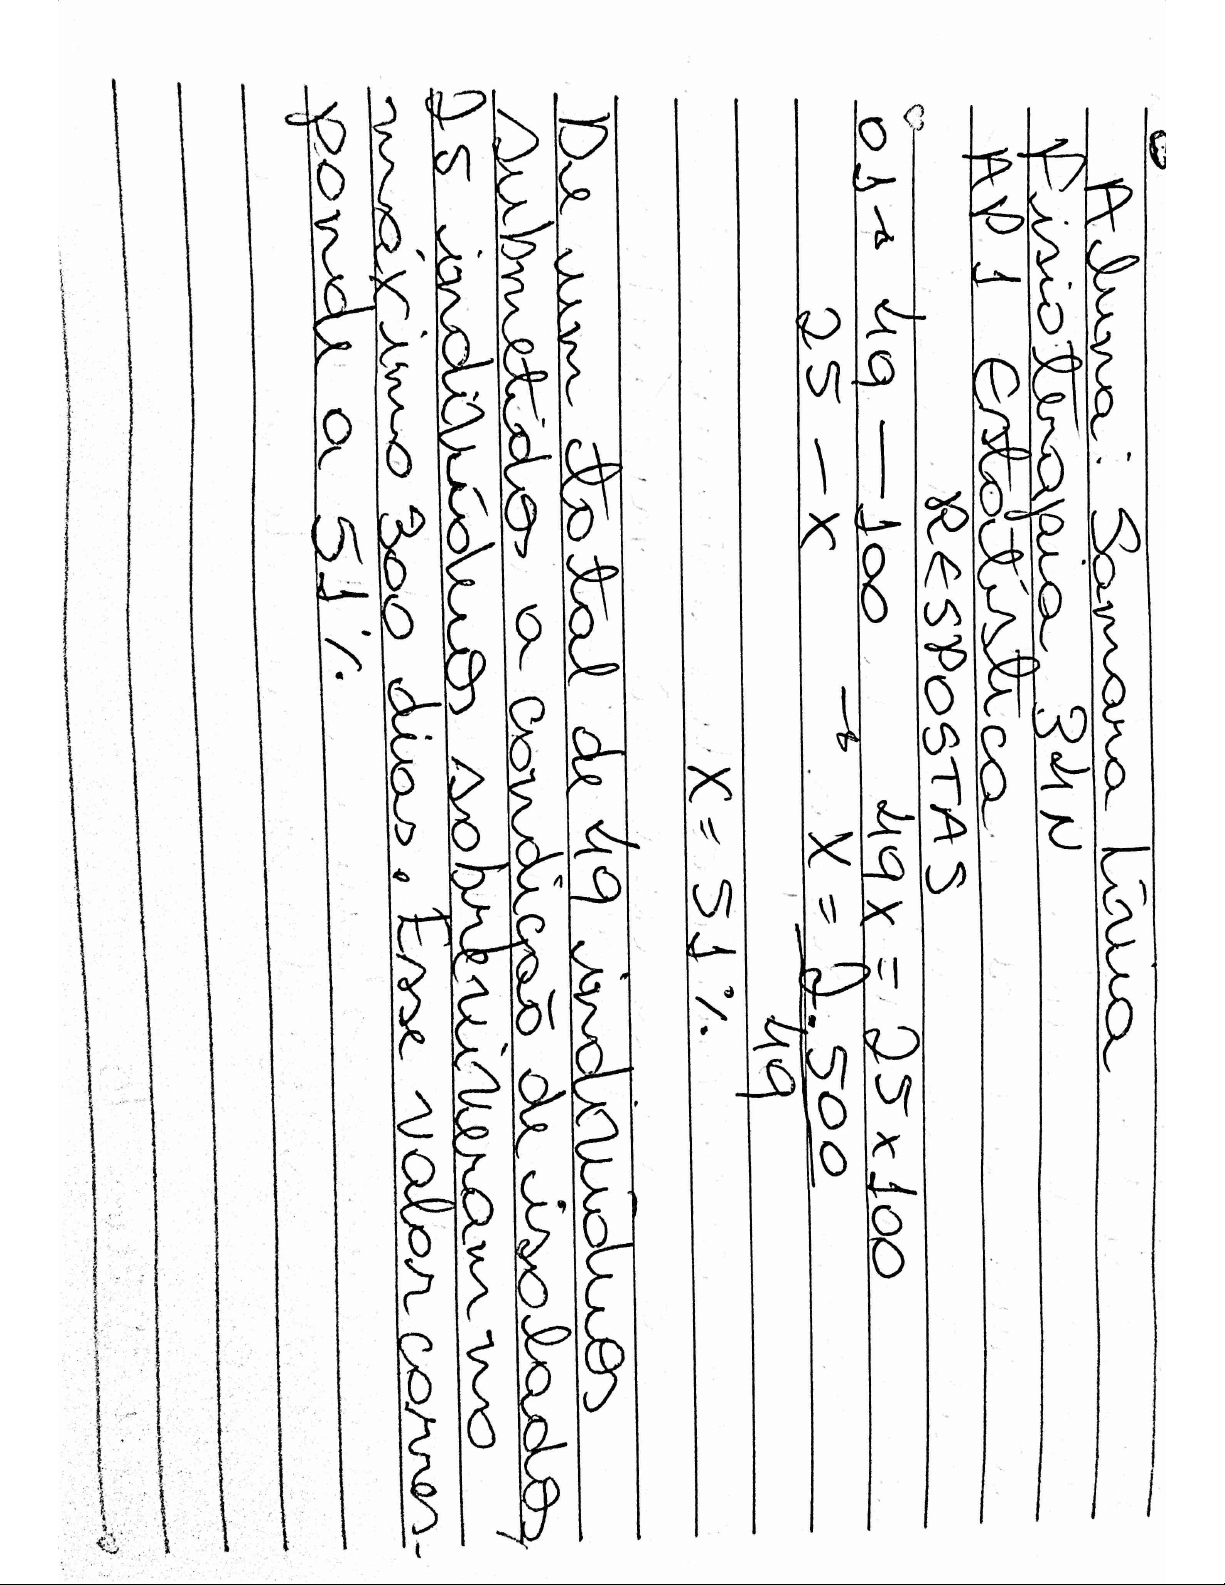 Aluna: Samara Lívia
Fisioterapia 3MN
AP1 Estatística
RESPOSTAS
01 → 49 — 100 → 49x = 25 x 100
25 — x x = 2.500
49
x = 51%
De um total de 49 indivíduos
submetidos a condição de isolados,
25 indivíduos sobreviveram no
máximo 300 dias. Esse valor corres-
ponde a 51%.